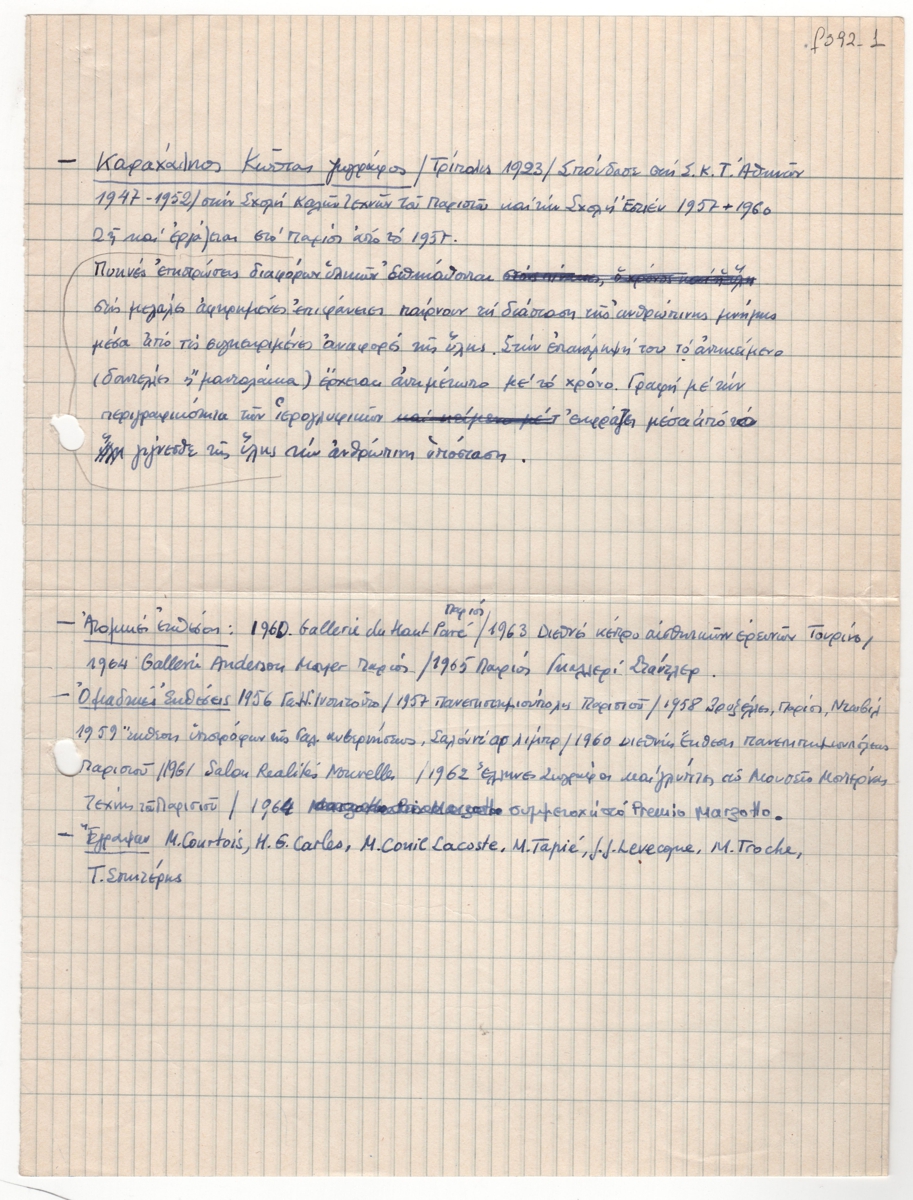 f392-1
– Καραχάλιος Κώστας ζωγράφος / Τρίπολις 1923 / Σπούδασε στή Σ.Κ.Τ. Ἀθηνῶν
1947-1952 / στήν Σχολή Καλῶν Τεχνῶν τοῦ Παρισιοῦ καί τήν Σχολή Ἐστιέν 1957 + 1960
Ζῆ καί ἐργάζεται στό Παρίσι ἀπό τό 1957.
Πυκνές ἐπιστρώσεις διαφόρων ὑλικῶν
στίς μεγάλες ἀφηρημένες ἐπιφάνειες παίρνουν τή διάσταση τῆς ἀνθρώπινης μνήμης
μέσα ἀπό τίς συγκεκριμένες ἀναφορές τῆς ὕλης. Στήν ἐπανάληψή του τό ἀντικείμενο
(δαντέλες ἤ μανταλάκια) ἔρχεται ἀντιμέτωπο μέ τό χρόνο. Γραφή μέ τήν
περιγραφικότητα τῶν ἱερογλυφικῶν καί κείμενο μέ τ ἐκφράζει μέσα ἀπό τό
γίγνεσθε τῆς ὕλης τήν ἀνθρώπινη ὑπόσταση.
Παρίσι
– Ἀτομικές ἐκθέσεις: 1960. Gallerie du Haut Pavé / 1963 Διεθνές κέντρο αἰσθητικῶν ἐρευνῶν Τουρίνο,
1964 Gallerie Anderson Mayer Παρίσι / 1965 Παρίσι Γκαλλερί Στάντλερ.
– Ὁμαδικές Ἐκθέσεις 1956 Γαλ. Ἰνστιτοῦτο / 1957 Πανεπιστημιούπολις Παρισιοῦ / 1958 Βρυξέλλες, Παρίσι, Ντωβίλ
1959 Ἔκθεση ὑποτρόφων τῆς Γαλ. κυβερνήσεως, Σαλόν ντέ αρ λίμπρ / 1960 Διεθνής Ἔκθεση πανεπιστημιουπόλεως
Παρισιοῦ / 1961 Salon Realités Nouvelles / 1962 Ἕλληνες Ζωγράφοι καί γλύπτες στό Μουσεῖο Μοντέρνας
Τέχνης τοῦ Παρισιοῦ / 1964 συμμετοχή στό Premio Marzotto.
– Ἔγραψαν M. Courtois, H. G. Carles, M. Conil Lacoste, M. Tapié, J.J. Levecque, M. Troche,
Τ. Σπητέρης